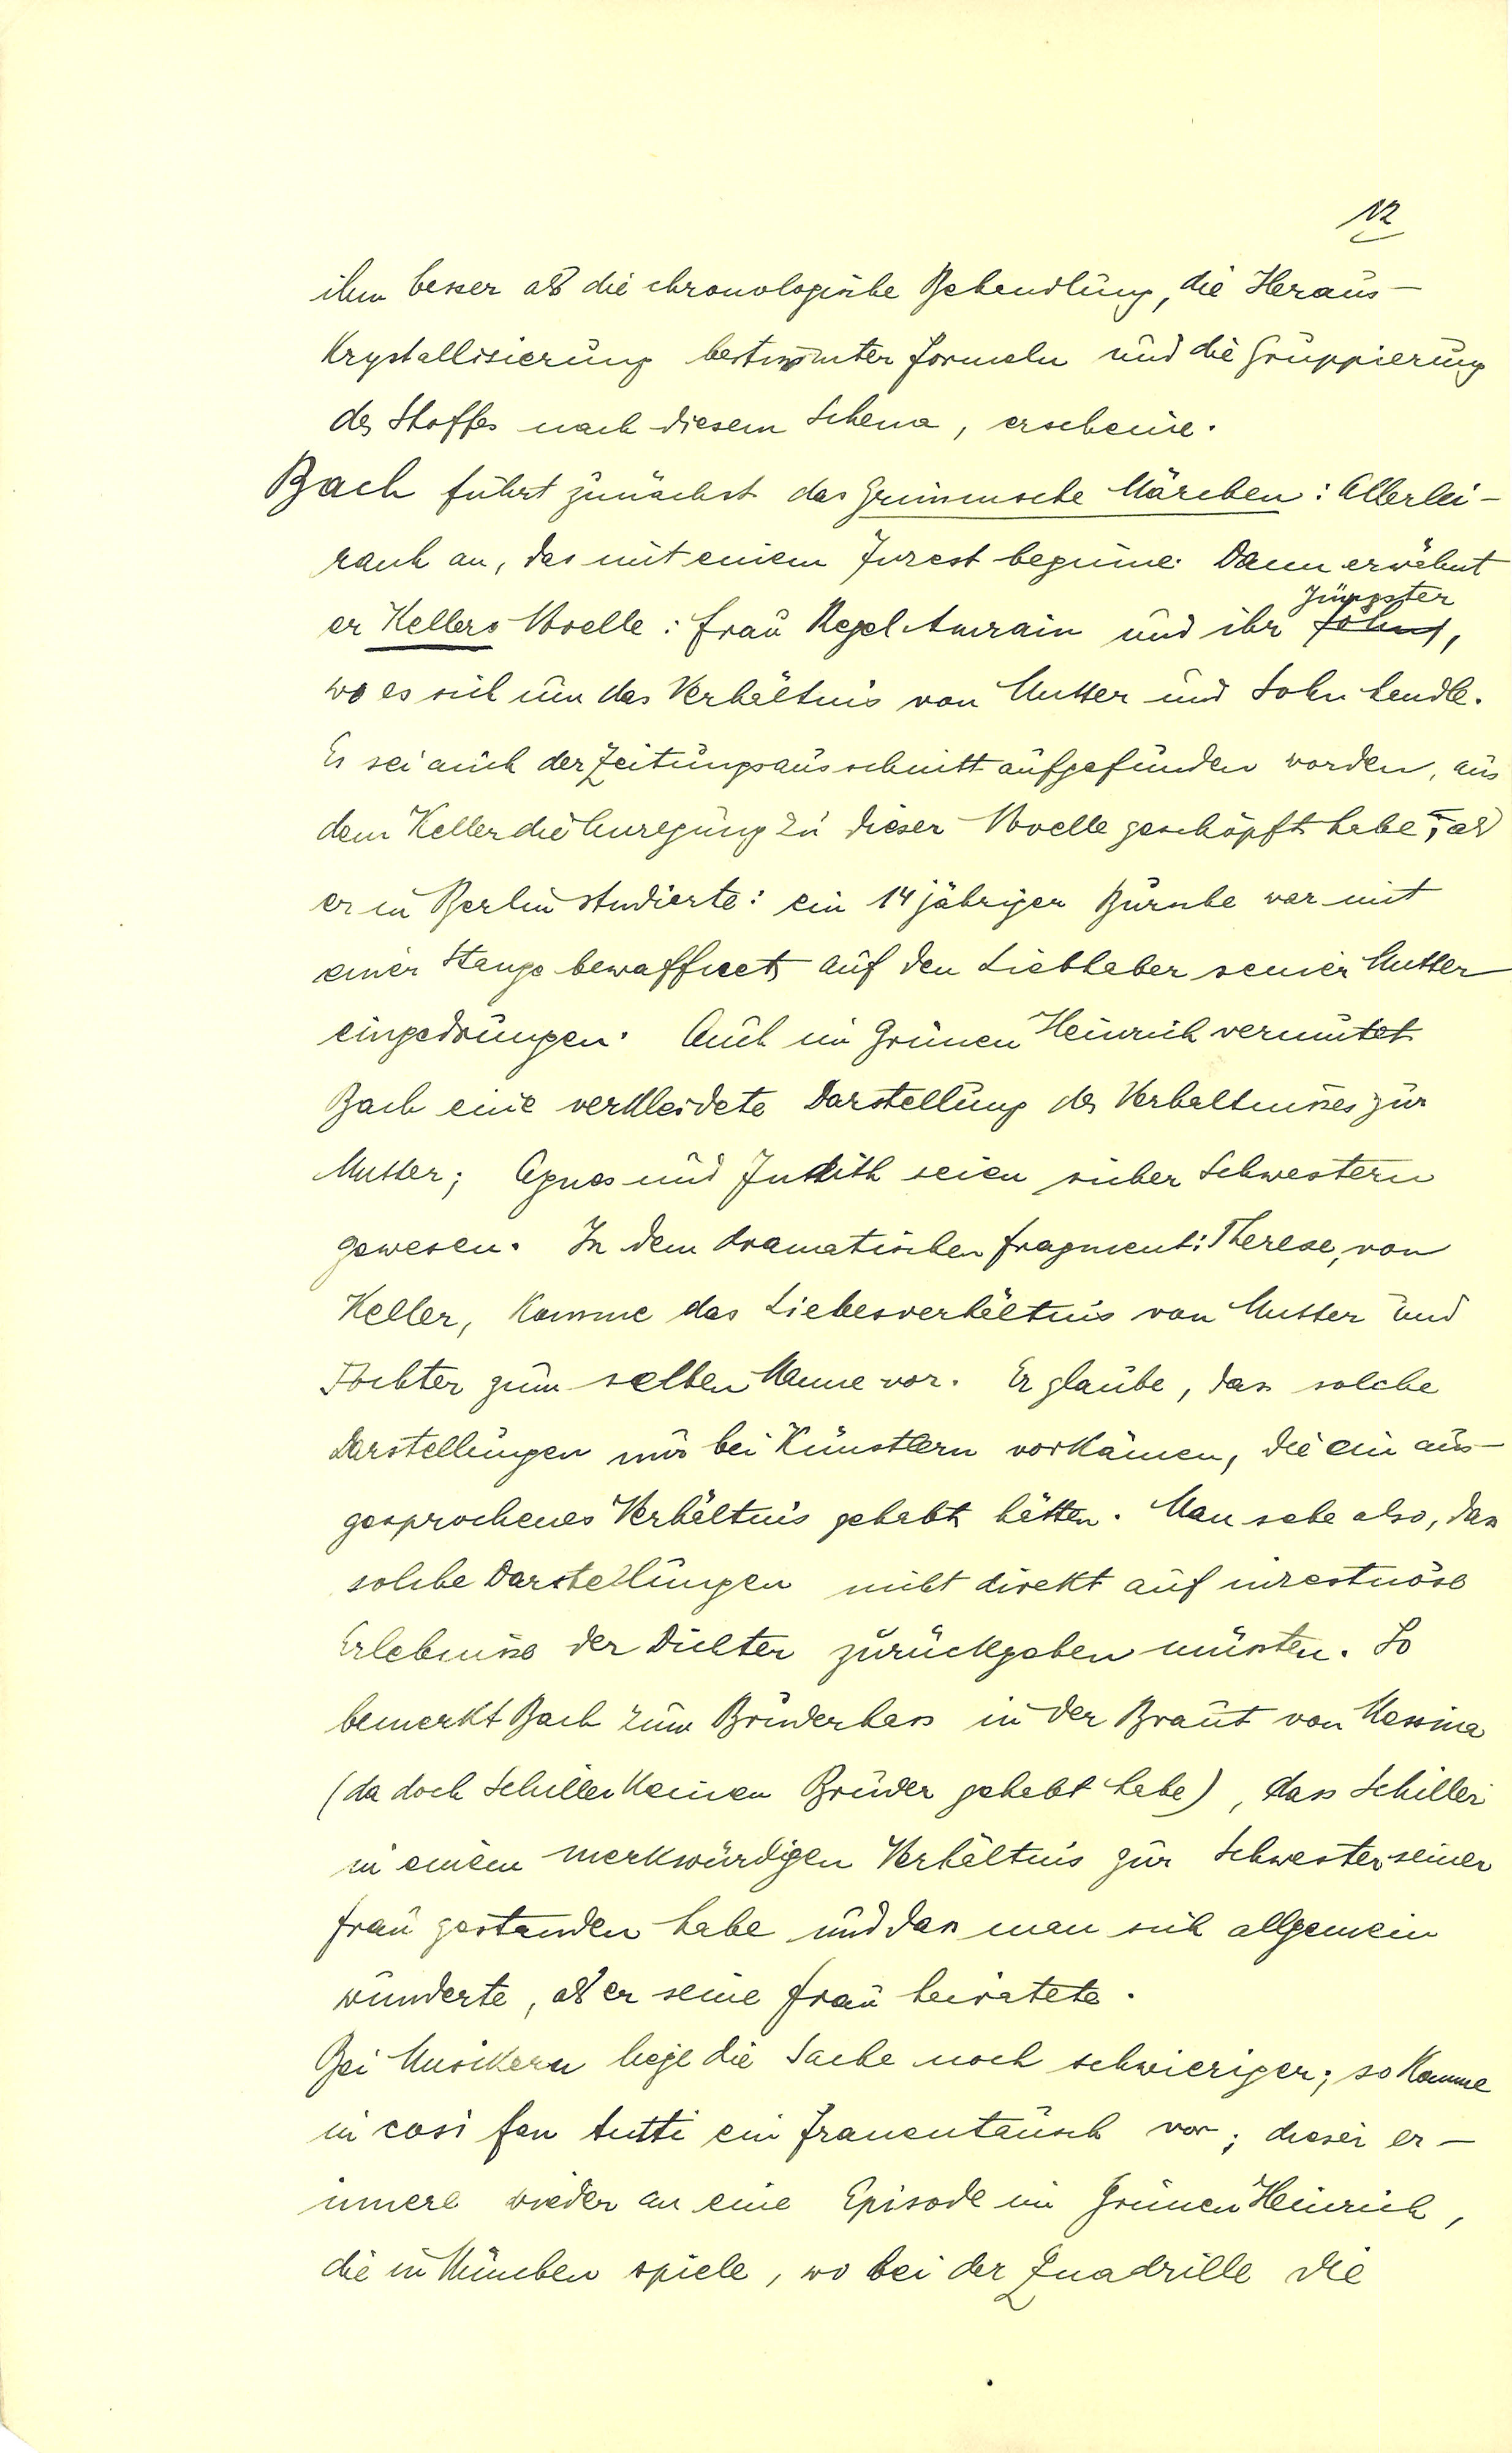 12
ihm besser als die chronologische Behandlung, die Heraus-
Krystallisierung bestimmter Formeln und die Gruppierung
des Stoffes nach diesem Schema, erscheine.
Bach führt zunächst das Grimmsche Märchen: Allerlei-
rauh an, das mit einem Inzest beginne. Dann erwähnt
Jüngster
er Kellers Novelle: Frau Regel Amrain und ihr Sohn,
wo es sich um das Verhältnis von Mutter und Sohn handle.
Es sei auch der Zeitungsausschnitt aufgefunden worden, aus
dem Keller die Anregung zu dieser Novelle geschöpft habe, als
er in Berlin studierte: ein 14 jähriger Bursche war mit
einer Stange bewaffnet auf den Liebhaber seiner Mutter
eingedrungen. Auch im Grünen Heinrich vermutet
Bach eine verkleidete Darstellung des Verhältnisses zur
Mutter; Agnes und Judith seien sicher Schwestern
gewesen. In dem dramatischen Fragment: Therese, von
Keller, komme das Liebesverhältnis von Mutter und
Tochter zum selben Manne vor. Er glaube, dass solche
Darstellungen nur bei Künstlern vorkämen, die ein aus-
gesprochenes Verhältnis gehabt hätten. Man sehe also, dass
solche Darstellungen nicht direkt auf inzestuöse
Erlebnisse der Dichter zurückgehen müssten. So
bemerkt Bach zum Bruderhass in der Braut von Messina
(da doch Schiller keinen Bruder gehabt habe), dass Schiller
in einem merkwürdigen Verhältnis zur Schwester seiner
Frau gestanden habe und dass man sich allgemein
wunderte, als er seine Frau heiratete.
Bei Musikern liege die Sache noch schwieriger; so komme
in cosi fan tutti ein Frauentausch vor; dieser er-
innere wieder an eine Episode im Grünen Heinrich,
die in München spiele, wo bei der Quadrille die